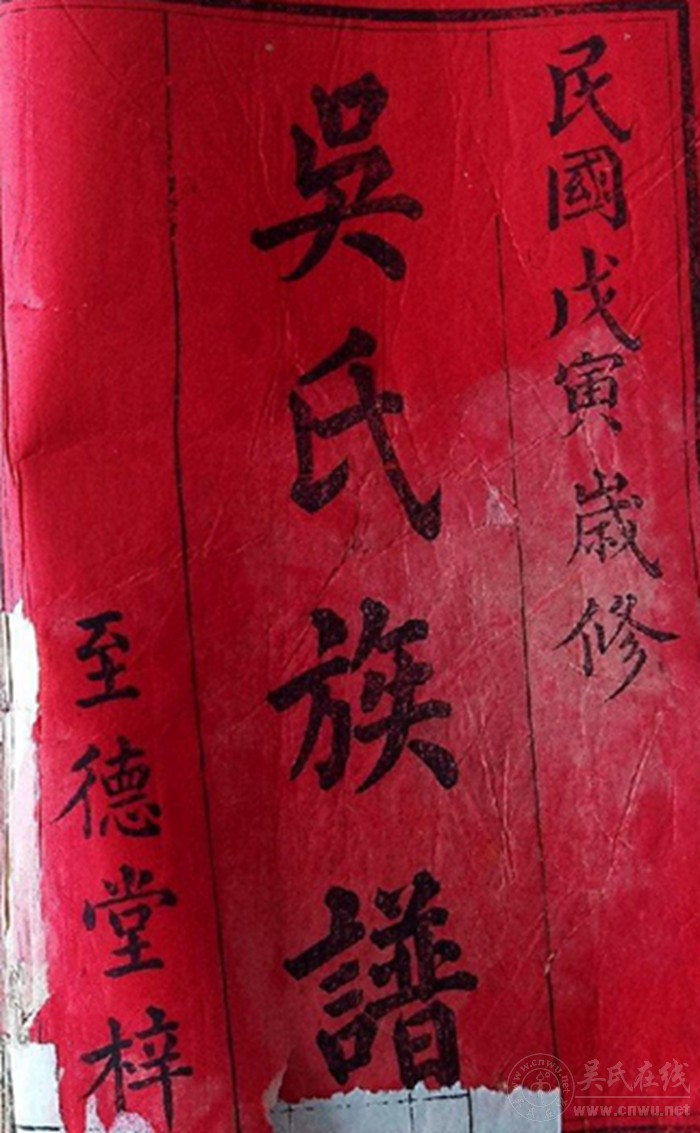 民國戊寅歲修
吳氏族譜
至德堂梓
吴氏在线
www.cnwu.net